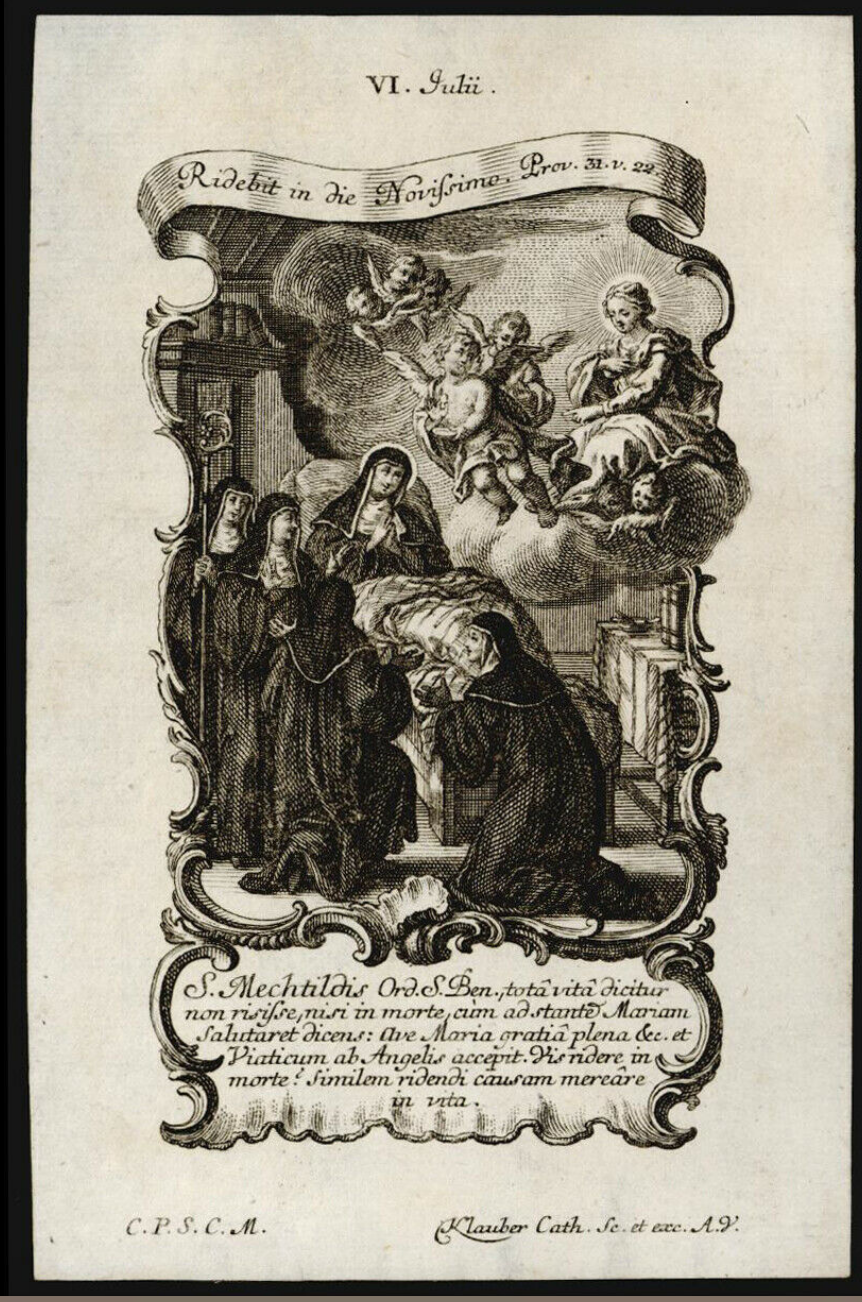 VI. Julii.
Ridebit in die Novissimo. Prov. 31. v. 22.
S. Mechtildis Ord. S. Ben., totâ vitâ dicitur
non risisse, nisi in morte, cùm adstantẽ Mariam
salutaret dicens: Ave Maria gratiâ plena &c. et
Viaticum ab Angelis accepit. Vis ridere in
morte? similem ridendi causam mereâre
in vita.
C. P. S. C. M.
Klauber Cath. Sc. et exc. A.V.